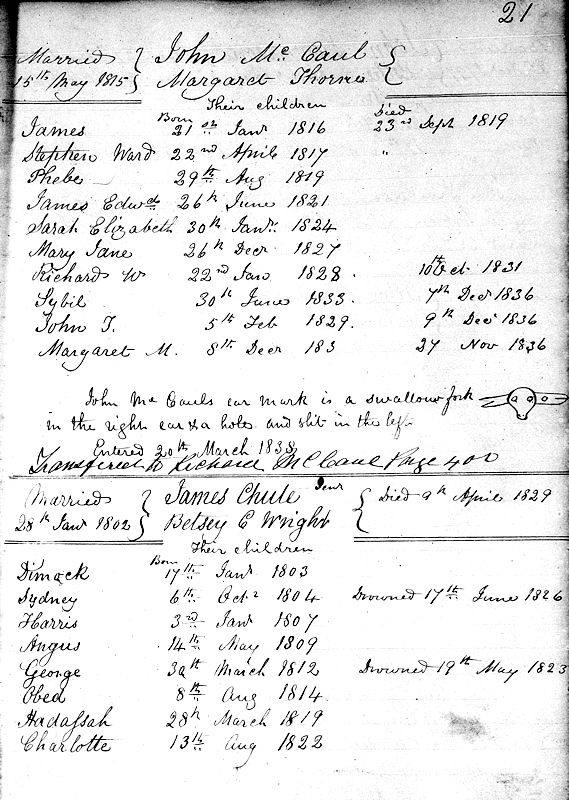 21
Married 15th May 1815 John Mc Caul
Margaret Thorne
Their children
Born Died
James 21st Janr 1816 23rd Sept 1819
Stephen Ward 22nd April 1817 "
Phebe 29th Aug 1819
James Edwd 26th June 1821
Sarah Elizabeth 30th Janr 1824
Mary Jane 26th Decr 1827
Richard W 22nd Jan 1828. 10th Oct 1831
Sybil 30th June 1833. 7th Decr 1836
John T. 5th Feb 1829. 9th Decr 1836
Margaret M. 8th Decr 183 27 Nov 1836
John Mc Cauls ear mark is a swallow fork
in the right ear & a hole and slit in the left
Entered 20th March 1838
Transferred to Richard McCaul Page 400
Married 28th Janr 1802 James Chute Senr Died 9th April 1829
Betsey C Wright
Their children
Born
Dimock 17th Janr 1803
Sydney 6th Octr 1804 Drowned 17th June 1826
Harris 3rd Janr 1807
Angus 14th May 1809
George March 1812 Drowned 19th May 1823
Obed 8th Aug 1814
Hadaſsah 28th March 1819
Charlotte 13th Aug 1822